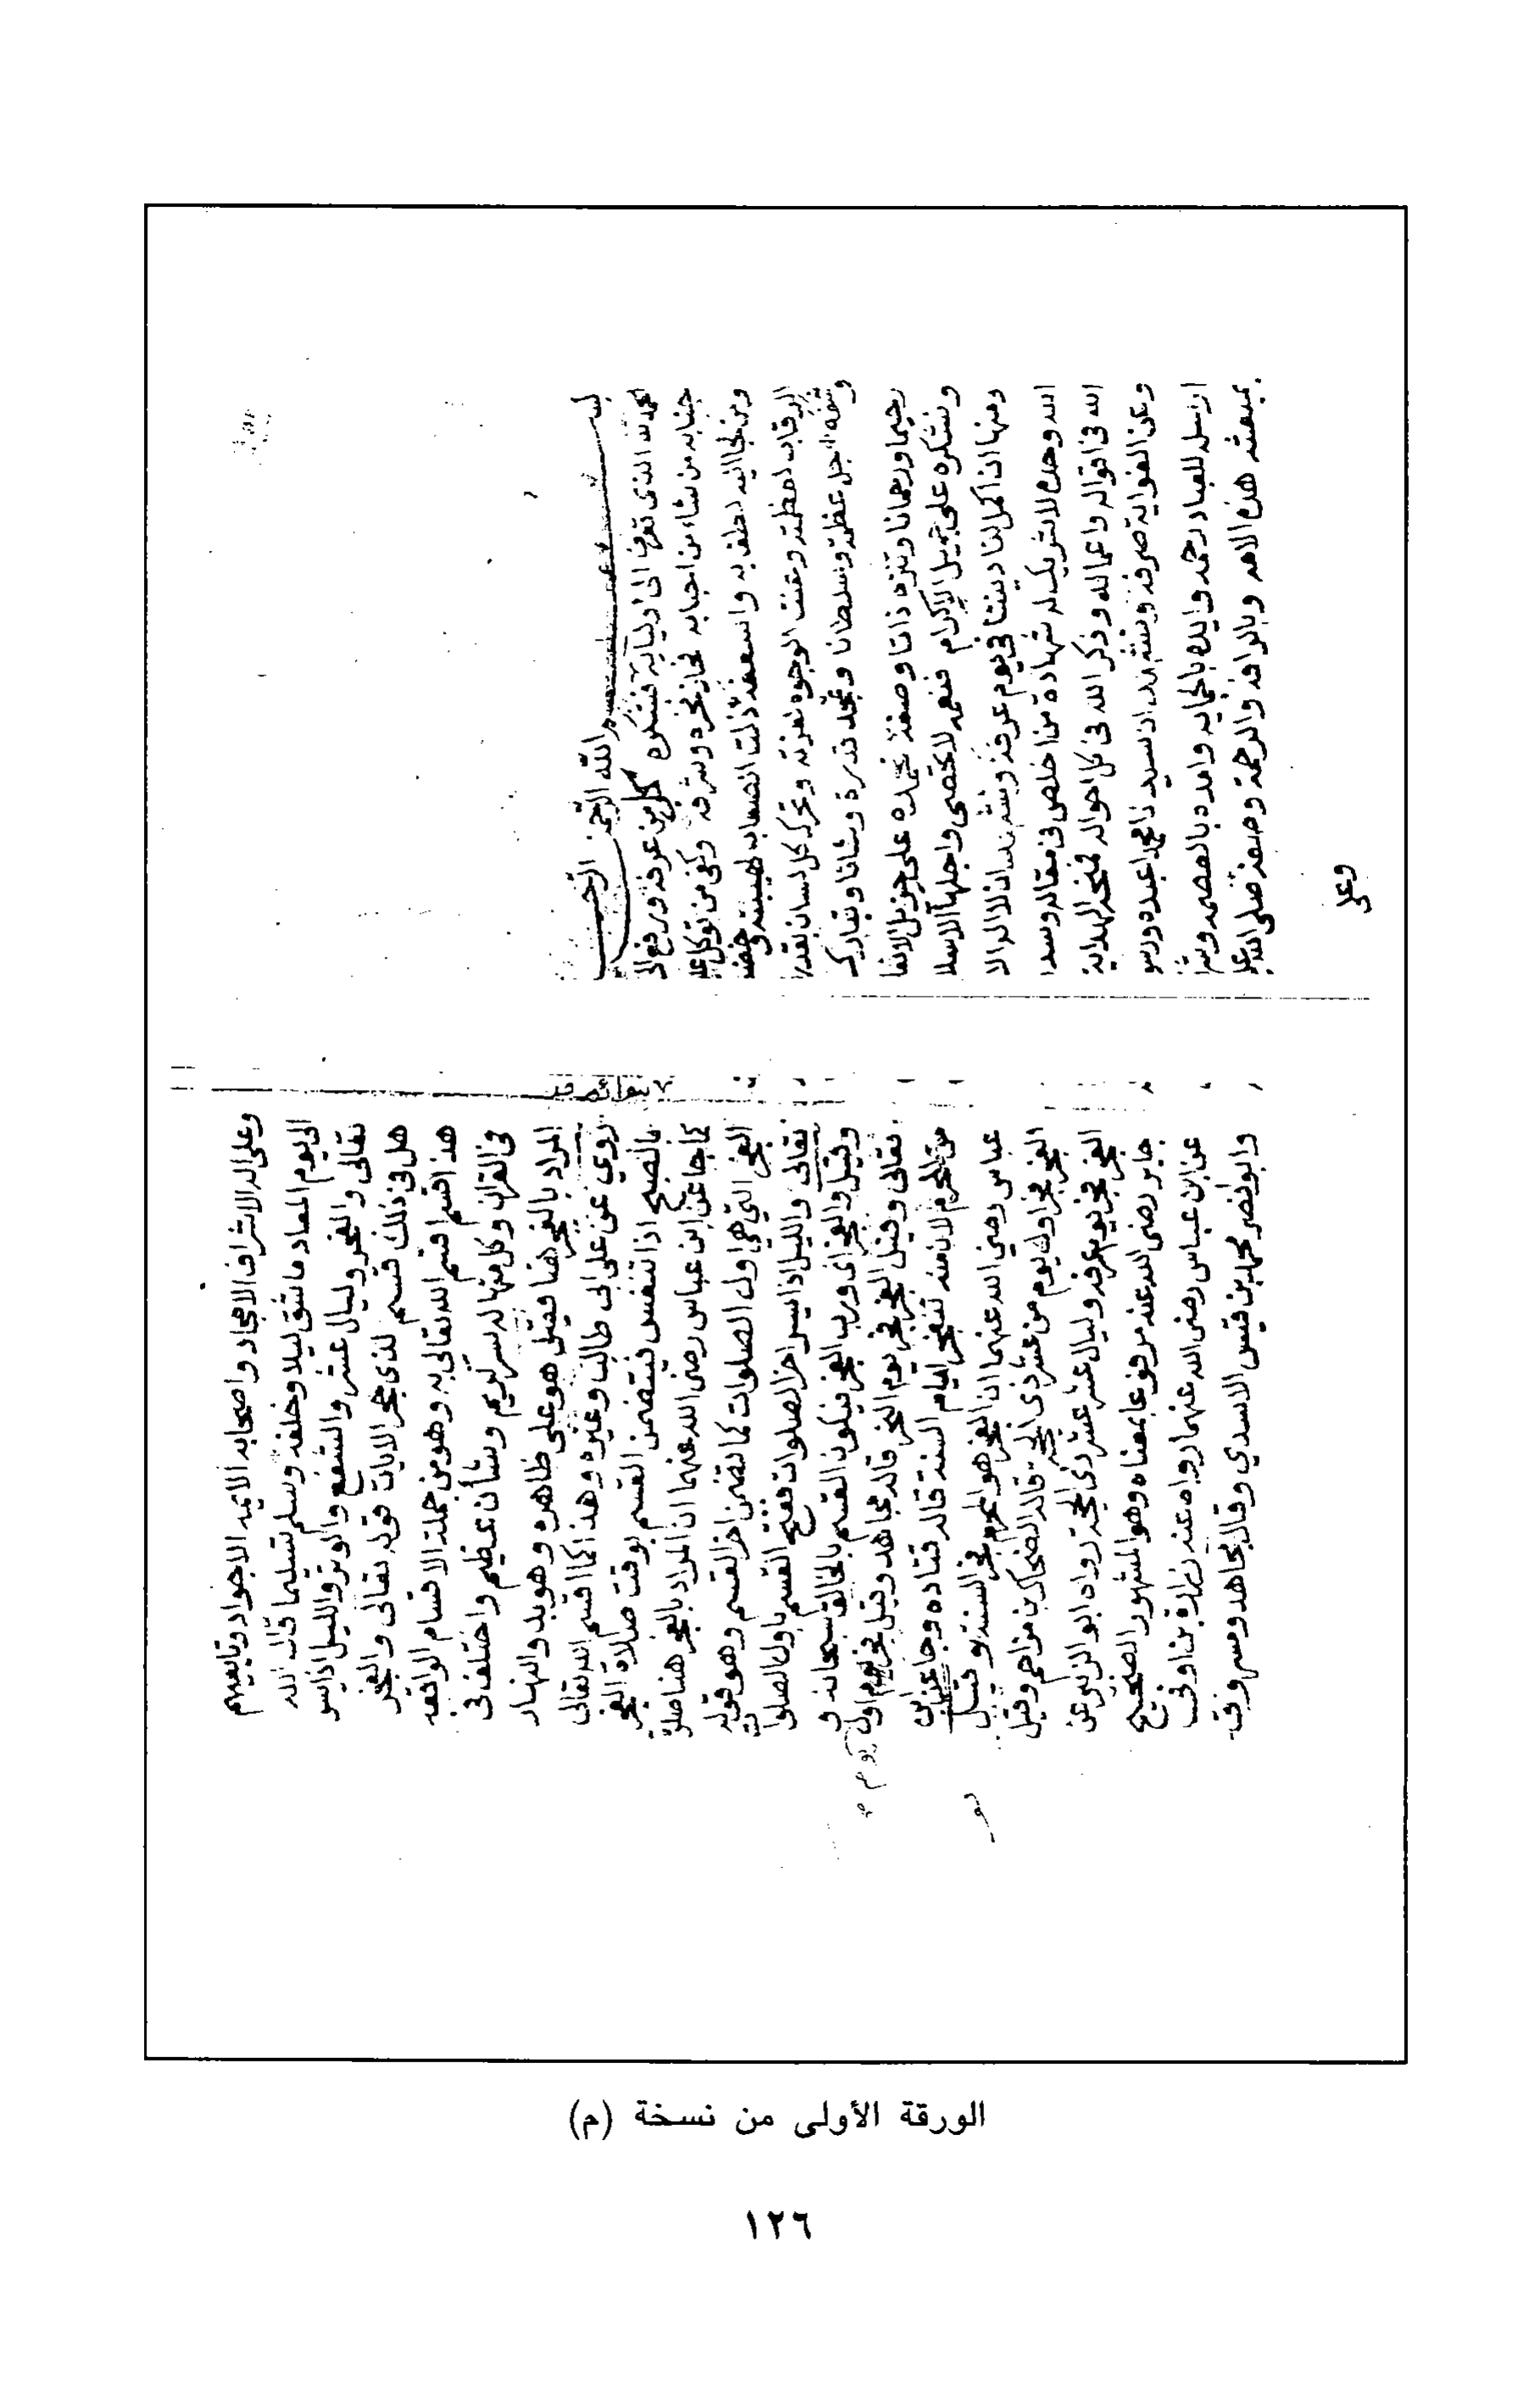 بسم الله الرحمن الرحيم
الحمد لله الذي تعرف الى اوليايه فشكره كل من عرفه ورفع الى
جنابه من شاء من احبابه فحاز فخره وشرفه وكفى من توكل عليه
ومن لجا اليه لطف به واسعفه ذلت الصعاب لهيبته وخضعت
الرقاب لعظمته وعنت الوجوه لعزته وتحرك كل لسان بقدر
عز وجل عظمة وسلطانا وتمجد قدرة وشانا وتبارك
رحيما ورحمانا وتنزه ذاتا وصفة نحمده على جزيل الانعا
ونشكره على جميل الاكرام فنعمه لا تحصى واجلها الاسلا
ومنها ان اكمل لنا ديننا في يوم عرفة ونشهد ان لا اله الا
الله وحده لا شريك له شهادة من اخلص في مقاله وسدا
الله في اقواله واعماله وذكر الله في كل احواله فمنحه الهداية
وعن الغواية صرفه ونشهد ان سيدنا محمدا عبده ورسو
ارسله للعباد رحمة وايده وامده بالعصمة
بمبعثه هذه الامة وبالرافة والرحمة وصفه صلى الله عليه
وعلى
وعلى اله الاشراف الامجاد واصحابه الايمة الاجواد وتابعيهم
الى يوم المعاد ما شق ليلا وخلفه وسلم تسليما قال الله
تعالى والفجر وليال عشر والشفع والوتر والليل اذا يسر
هل في ذلك قسم لذي حجر الايات قوله تعالى والفجر
هذا قسم اقسم الله تعالى به وهو من جملة الاقسام الواقعة
في القران وكل منها له سر كريم وشأن عظيم واختلف في
المراد بالفجر هنا فقيل هو على ظاهره وهو بدو النهار
روي عن علي بن ابي طالب وغيره وهذا كما اقسم الله تعالى
بالصبح اذا تنفس فيتضمن القسم بوقت صلاة الفجر
كما جا عن ابن عباس رضي الله عنهما ان المراد بالفجر هنا صلاة
الفجر التي هي اول الصلوات كما تضمن اخر القسم وهو قوله
تعالى والليل اذا يسر اخر الصلوات ففتح القسم باول الصلوات
وقيل والفجر اي ورب الفجر فيكون القسم بالخالق سبحانه و
تعالى وقيل الفجر فجر يوم النحر قاله مجاهد وقيل فجر يوم اول يوم
من المحرم لان منه تنفجر ايام السنة قاله قتادة وجا عن ابن
عباس رضي الله عنهما ان الفجر هو المحرم فجر السنة وقيل
الفجر فجر اول يوم من عشر ذي الحجة قاله الضحاك بن مزاحم وقيل
الفجر فجر يوم عرفة وليال عشر عشر ذي الحجة رواه ابو الزبير عن
جابر رضي الله عنه مرفوعا بمعناه وهو المشهور الصحيح
عن ابن عباس رضي الله عنهما رواه عنه زرارة بن اوفى
وابو نصر محمد بن قيس الاسدي وقال مجاهد ومسروق
الورقة الأولى من نسخة (م)
١٢٦